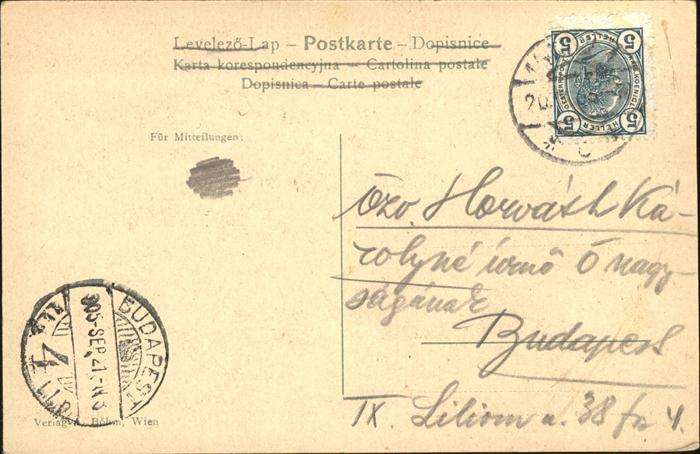 Levelező-Lap – Postkarte – Dopisnice
Karta korespondencyjna – Cartolina postale
Dopisnica – Carte postale
5 HELLER 5
5 HELLER 5
Für Mitteilungen:
Özv. Horváth Ká-
rolyné úrnő ő nagy-
ságának
Budapest
IX. Liliom u. 38 fz 4.
BUDAPEST
905 SEP. 21
4
Verlag v. Böhm, Wien